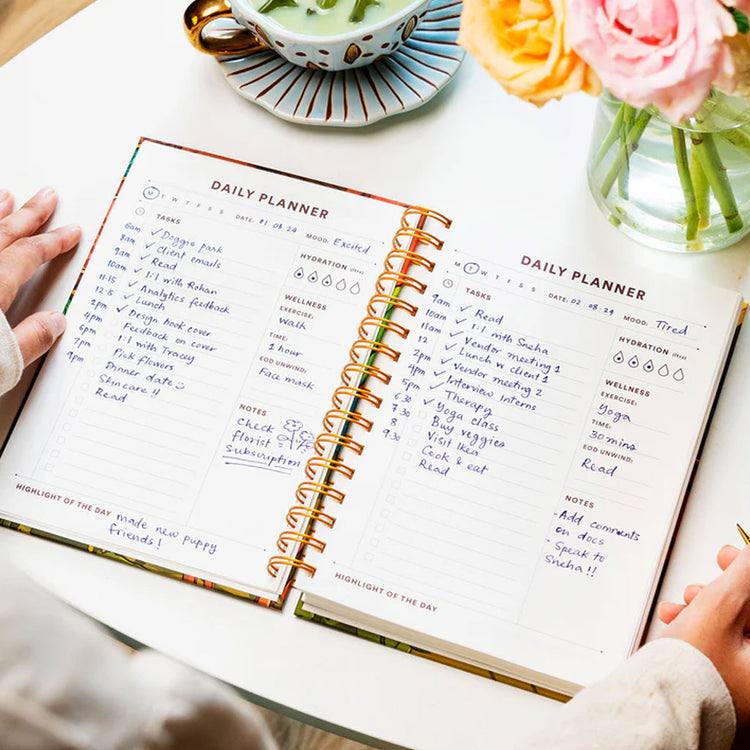 DAILY PLANNER
M T W T F S S DATE: 01 08 24 MOOD: Excited
TASKS
6am Doggie park
8am Client emails
9am Read
10am 1:1 with Rohan
11am Analytics feedback
11.15 Lunch
12.5 Design book cover
2pm Feedback on cover
4pm 1:1 with Tracey
6pm Pick flowers
7pm Dinner date
9pm Skincare !!
Read
HYDRATION
WELLNESS
EXERCISE:
Walk
TIME:
1 hour
EOD UNWIND:
Face mask
NOTES
Check
florist
subscription
HIGHLIGHT OF THE DAY
made new puppy
friends!
DAILY PLANNER
M T W T F S S DATE: 02 08 24 MOOD: Tired
TASKS
9am Read
10am 1:1 with Sneha
11am Vendor meeting 1
12 Lunch w client 1
2pm Vendor meeting 2
4pm Interview Interns
5pm Therapy
6.30 Yoga class
7.30 Buy veggies
8 Visit Ikea
9.30 Cook & eat
Read
HYDRATION
WELLNESS
EXERCISE:
Yoga
TIME:
30 mins
EOD UNWIND:
Read
NOTES
- Add comments
on docs
- Speak to
Sneha !!
HIGHLIGHT OF THE DAY